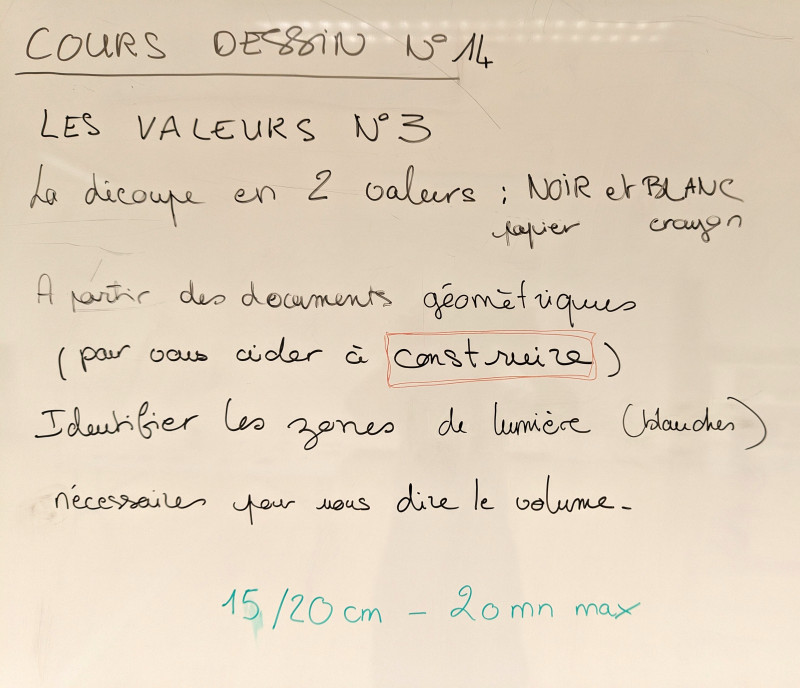 COURS DESSIN N°14
LES VALEURS N°3
La découpe en 2 valeurs : NOIR et BLANC
papier crayon
A partir des documents géométriques
(pour vous aider à construire)
Identifier les zones de lumière (blanches)
nécessaires pour nous dire le volume.
15/20 cm - 20 mn max